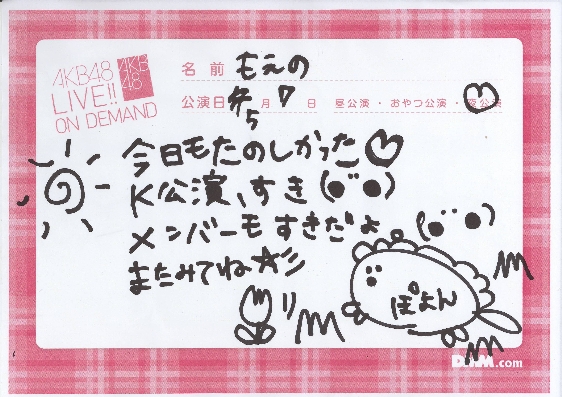 AKB48
LIVE!!
ON DEMAND
AKB
48
名前 もえの
公演日 5月 7日 昼公演・おやつ公演・夜公演
今日もたのしかった♡
K公演、すき
メンバーもすきだよ
またみてね☆彡
ぽよん
DMM.com